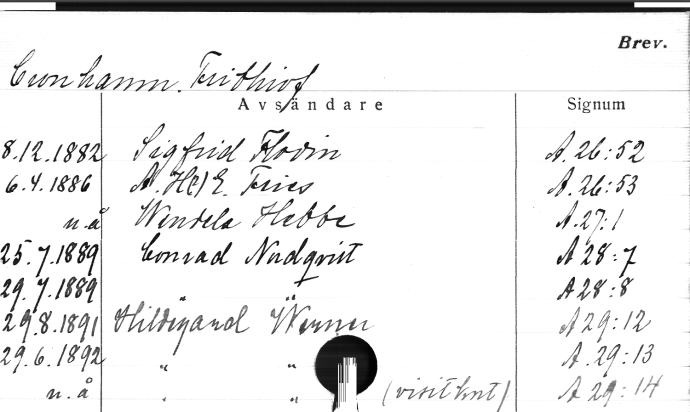 Brev.
Cronhamn. Frithiof
Avsändare Signum
8.12.1882 Sigfrid Flodin A. 26:52
6.4.1886 A. H(?) E. Fries A. 26:53
u.å Wendela Hebbe A. 27:1
25.7.1889 Conrad Nordqvist A 28:7
29.7.1889 " " A 28:8
29.8.1891 Hildegard Werner A 29:12
29.6.1892 " " A. 29:13
u.å " " (visitkort) A 29:14